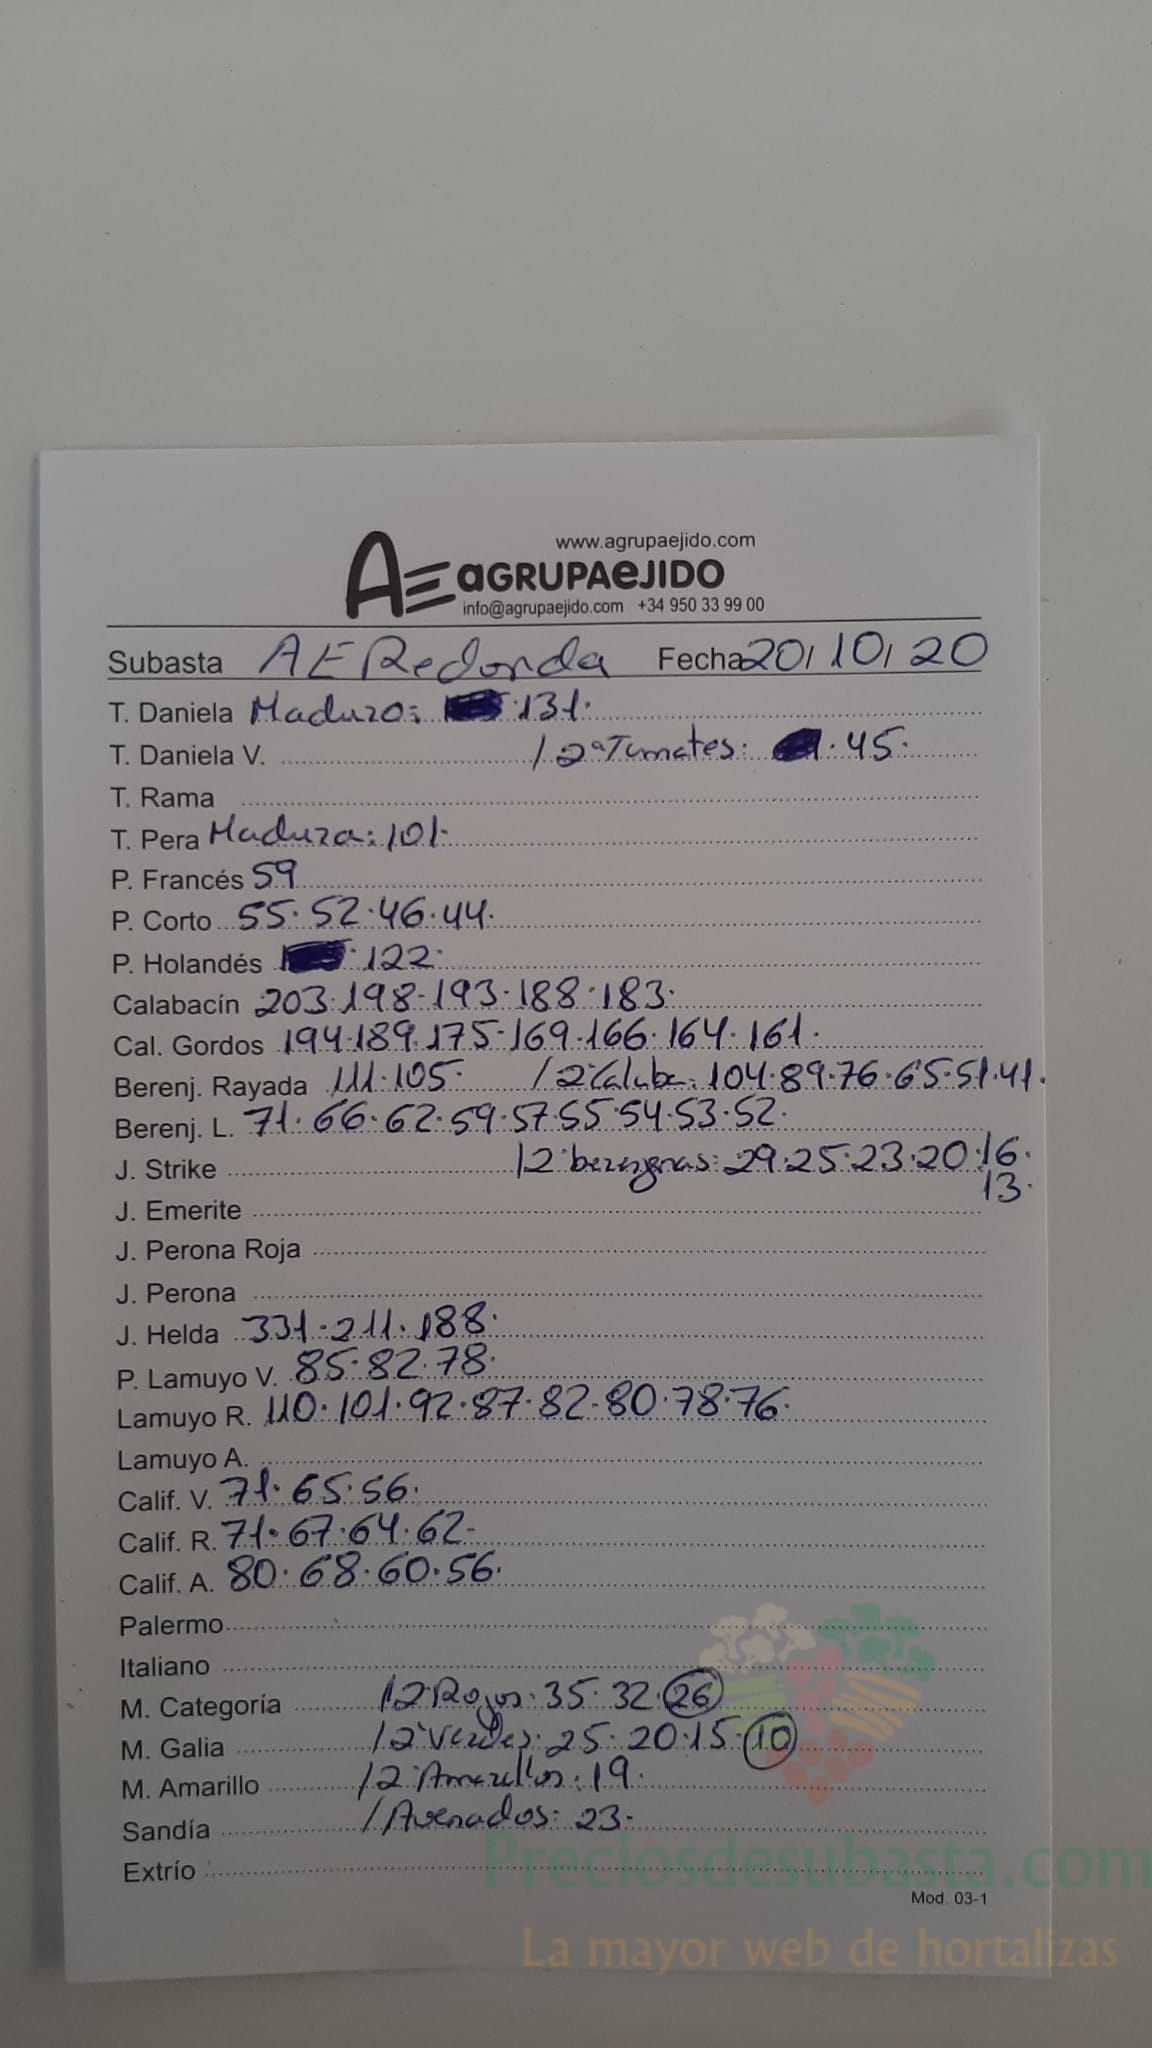 www.agrupaejido.com
AE aGRUPAeJIDO
info@agrupaejido.com +34 950 33 99 00
Subasta AE Redonda Fecha 20/10/20
T. Daniela Maduro: 131.
T. Daniela V. / 2ª Tomates: 45.
T. Rama
T. Pera Madura: 101.
P. Francés 59
P. Corto 55.52.46.44.
P. Holandés 122.
Calabacín 203.198.193.188.183.
Cal. Gordos 194.189.175.169.166.164.161.
Berenj. Rayada 111.105. / 2ª Calaba: 104.89.76.65.51.41.
Berenj. L. 71.66.62.59.57.55.54.53.52.
J. Strike / 2ª berengenas: 29.25.23.20.16.
13.
J. Emerite
J. Perona Roja
J. Perona
J. Helda 331.211.188.
P. Lamuyo V. 85.82.78.
Lamuyo R. 110.101.92.87.82.80.78.76.
Lamuyo A.
Calif. V. 71.65.56.
Calif. R. 71.67.64.62.
Calif. A. 80.68.60.56.
Palermo
Italiano
M. Categoría / 2ª Rojos: 35.32.26
M. Galia / 2ª Verdes: 25.20.15.10
M. Amarillo / 2ª Amarillos: 19.
Sandía / Asenados: 23.
Preciosdesubasta.com
Extrío
Mod. 03-1
La mayor web de hortalizas